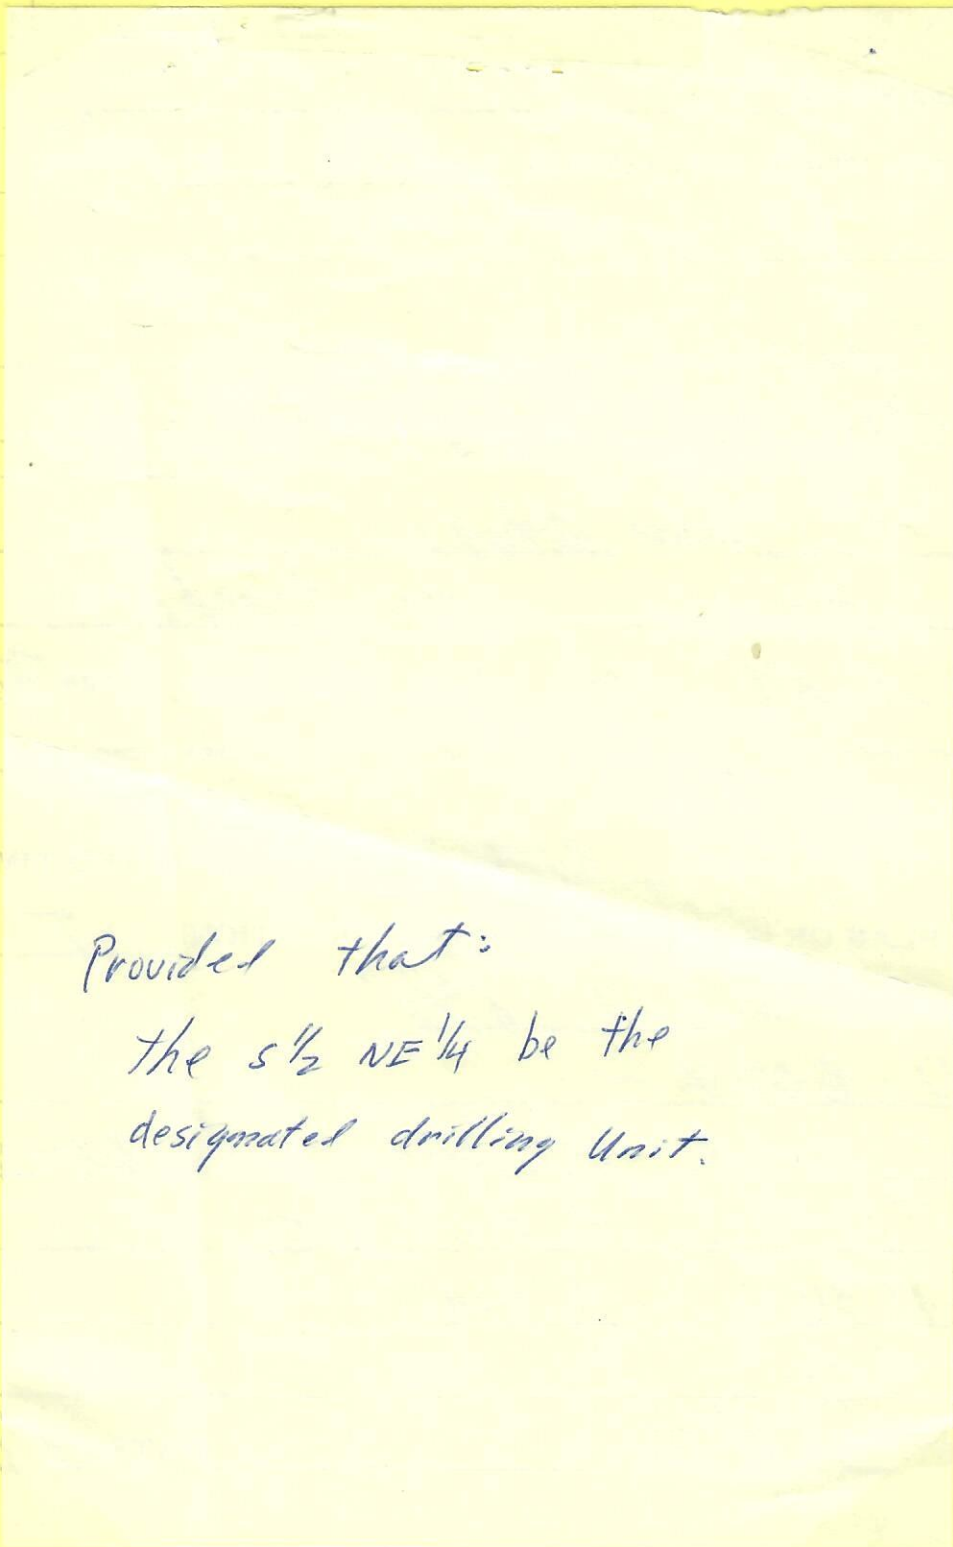 Provided that:
the S 1/2 NE 1/4 be the
designated drilling Unit.